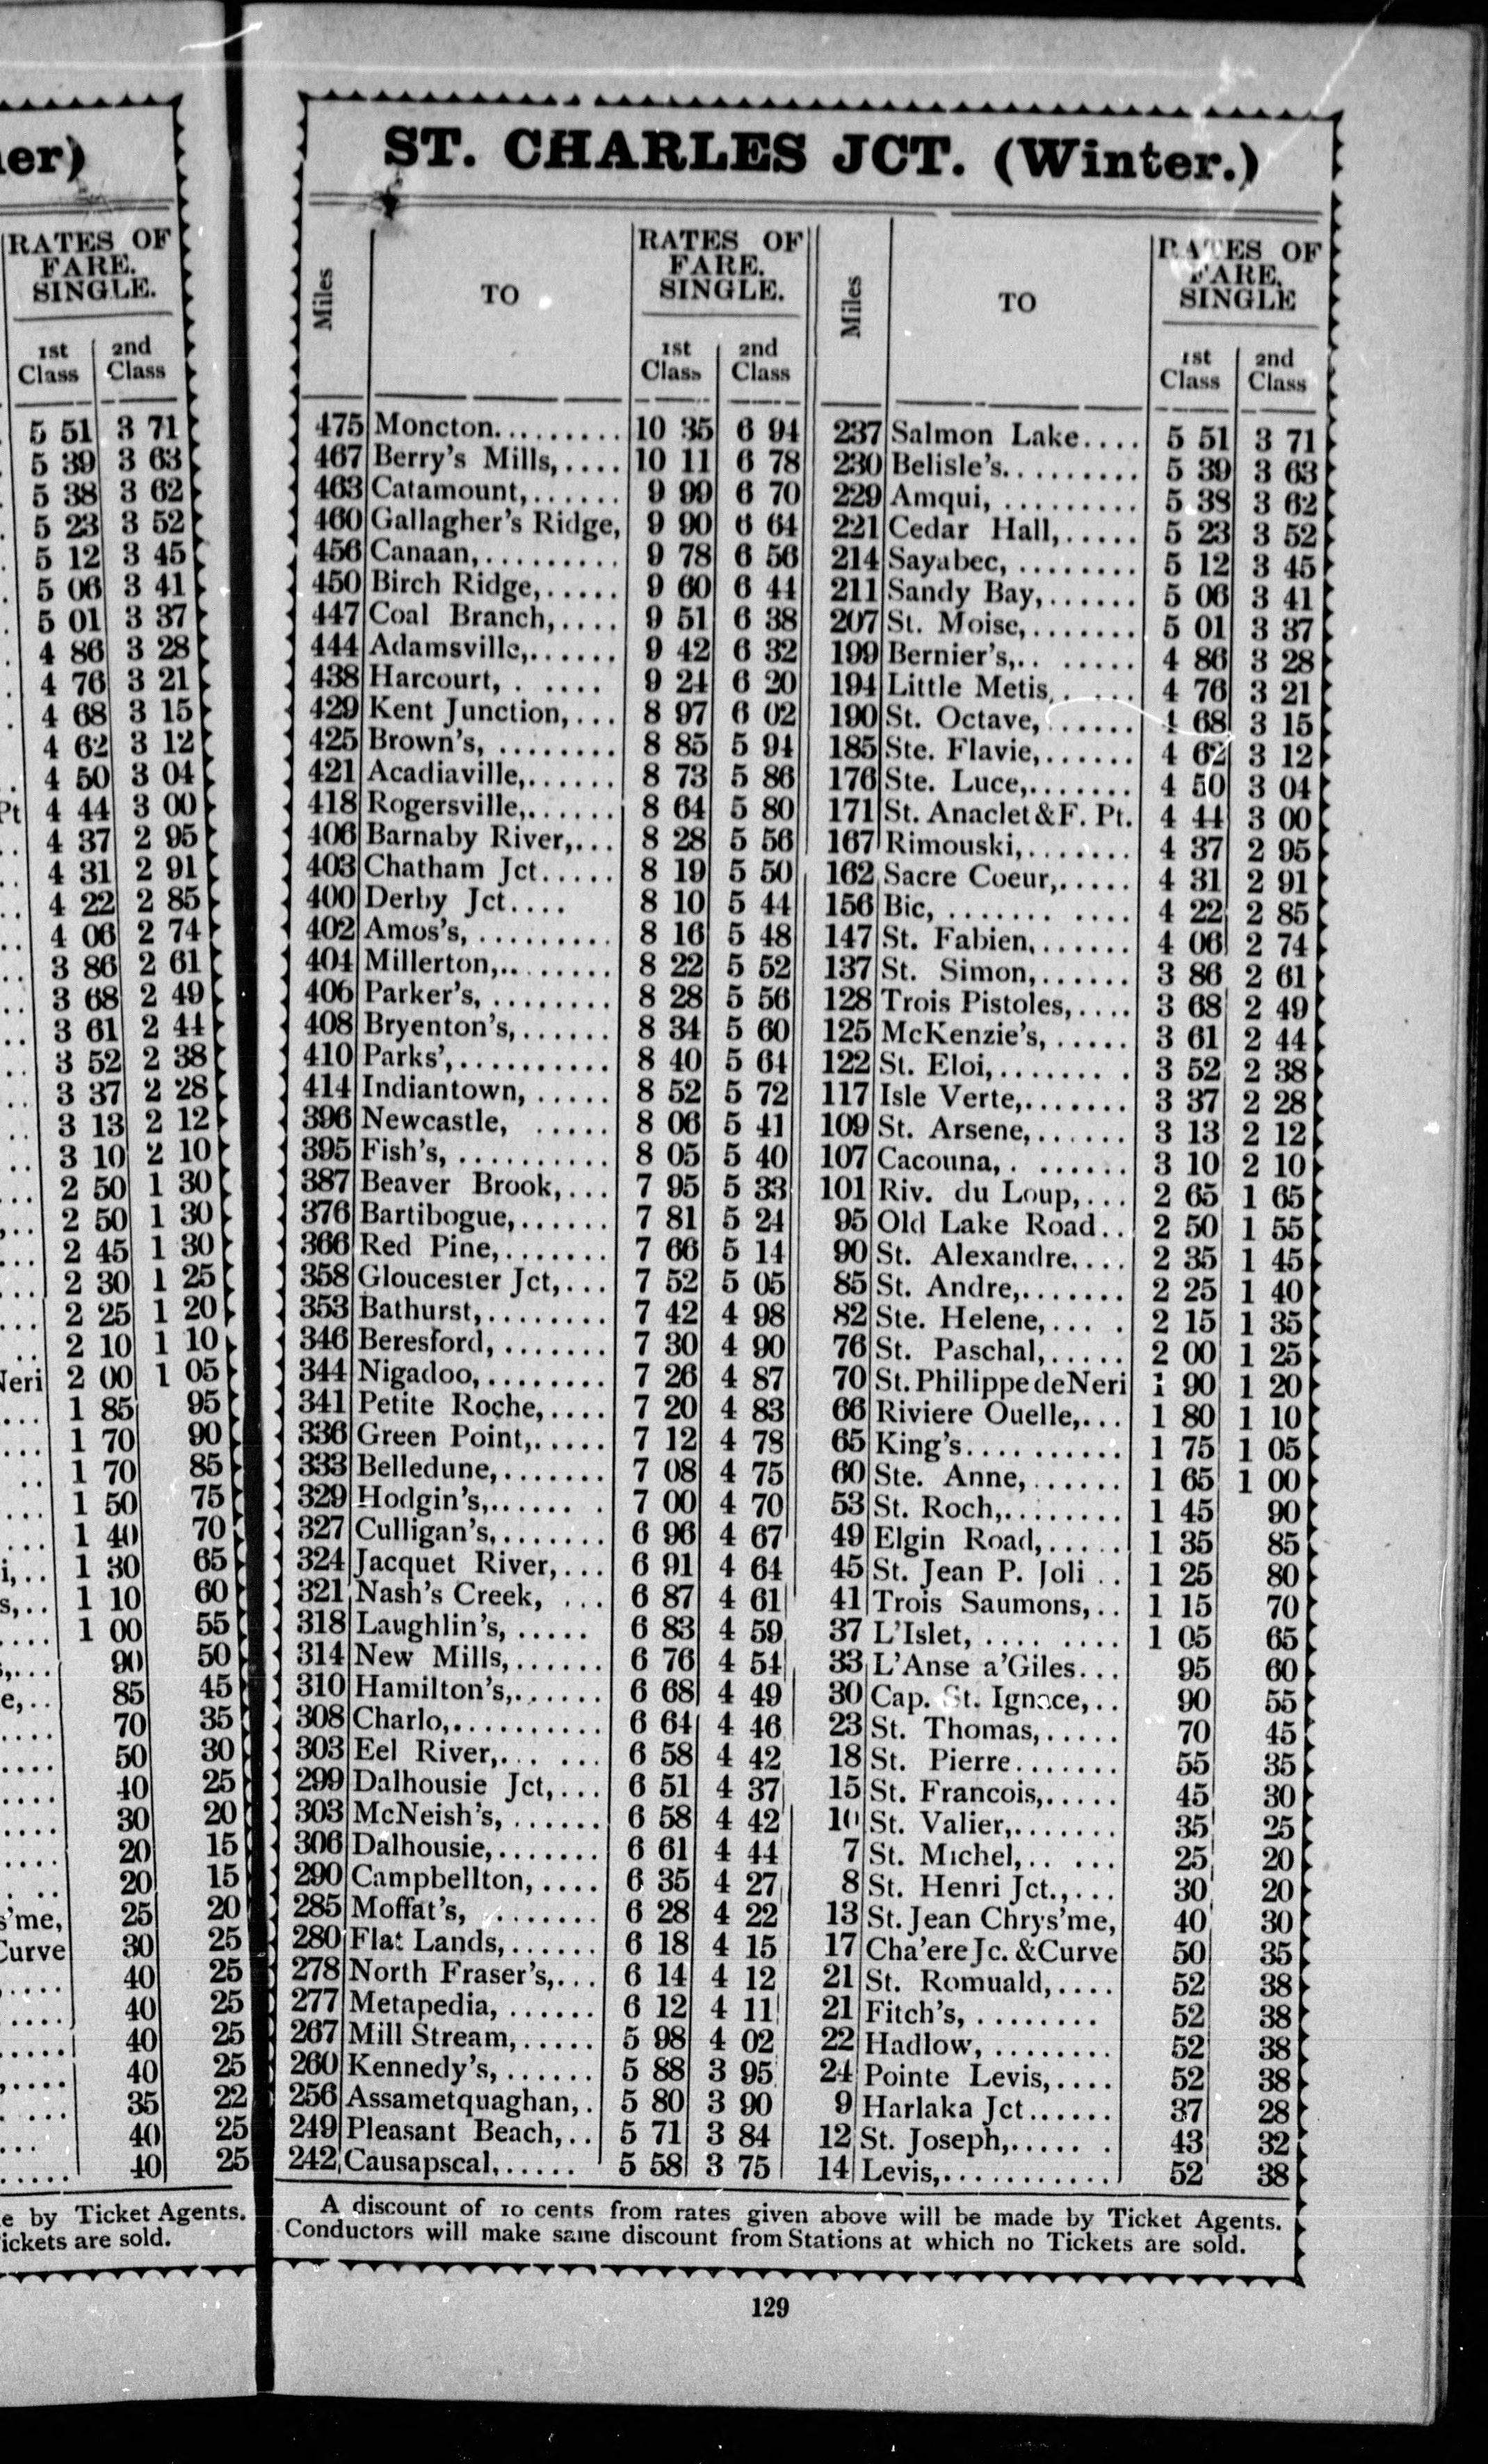 er)
RATES OF
FARE.
SINGLE.
1st Class 2nd Class
5 51 3 71
5 39 3 63
5 38 3 62
5 23 3 52
5 12 3 45
5 06 3 41
5 01 3 37
4 86 3 28
4 76 3 21
4 68 3 15
4 62 3 12
4 50 3 04
Pt 4 44 3 00
4 37 2 95
4 31 2 91
4 22 2 85
4 06 2 74
3 86 2 61
3 68 2 49
3 61 2 44
3 52 2 38
3 37 2 28
3 13 2 12
3 10 2 10
2 50 1 30
2 50 1 30
2 45 1 30
2 30 1 25
2 25 1 20
2 10 1 10
Neri 2 00 1 05
1 85 95
1 70 90
1 70 85
1 50 75
1 40 70
i,.. 1 30 65
s,.. 1 10 60
1 00 55
90 50
e,.. 85 45
70 35
50 30
40 25
30 20
20 15
20 15
s'me, 25 20
Curve 30 25
40 25
40 25
40 25
40 25
35 22
40 25
40 25
e by Ticket Agents.
ickets are sold.
ST. CHARLES JCT. (Winter.)
Miles
TO
RATES OF
FARE.
SINGLE.
1st Class 2nd Class
475 Moncton......... 10 35 6 94
467 Berry's Mills,.... 10 11 6 78
463 Catamount,...... 9 99 6 70
460 Gallagher's Ridge, 9 90 6 64
456 Canaan,.......... 9 78 6 56
450 Birch Ridge,..... 9 60 6 44
447 Coal Branch,.... 9 51 6 38
444 Adamsville,...... 9 42 6 32
438 Harcourt, . .... 9 24 6 20
429 Kent Junction,... 8 97 6 02
425 Brown's, ........ 8 85 5 94
421 Acadiaville,...... 8 73 5 86
418 Rogersville,...... 8 64 5 80
406 Barnaby River,... 8 28 5 56
403 Chatham Jct..... 8 19 5 50
400 Derby Jct.... 8 10 5 44
402 Amos's, .......... 8 16 5 48
404 Millerton,........ 8 22 5 52
406 Parker's, ........ 8 28 5 56
408 Bryenton's,...... 8 34 5 60
410 Parks',........... 8 40 5 64
414 Indiantown, ..... 8 52 5 72
396 Newcastle, ..... 8 06 5 41
395 Fish's, .......... 8 05 5 40
387 Beaver Brook,... 7 95 5 33
376 Bartibogue,...... 7 81 5 24
366 Red Pine,....... 7 66 5 14
358 Gloucester Jct,... 7 52 5 05
353 Bathurst,........ 7 42 4 98
346 Beresford, ....... 7 30 4 90
344 Nigadoo,......... 7 26 4 87
341 Petite Roche,.... 7 20 4 83
336 Green Point,..... 7 12 4 78
333 Belledune,....... 7 08 4 75
329 Hodgin's,...... . 7 00 4 70
327 Culligan's,....... 6 96 4 67
324 Jacquet River,... 6 91 4 64
321 Nash's Creek, ... 6 87 4 61
318 Laughlin's, ..... 6 83 4 59
314 New Mills,...... 6 76 4 54
310 Hamilton's,...... 6 68 4 49
308 Charlo,.......... 6 64 4 46
303 Eel River,... ... 6 58 4 42
299 Dalhousie Jct,... 6 51 4 37
303 McNeish's, ...... 6 58 4 42
306 Dalhousie,....... 6 61 4 44
290 Campbellton, .... 6 35 4 27
285 Moffat's, ....... 6 28 4 22
280 Flat Lands,...... 6 18 4 15
278 North Fraser's,... 6 14 4 12
277 Metapedia, ...... 6 12 4 11
267 Mill Stream,..... 5 98 4 02
260 Kennedy's, ...... 5 88 3 95
256 Assametquaghan,. 5 80 3 90
249 Pleasant Beach,.. 5 71 3 84
242 Causapscal,..... 5 58 3 75
Miles
TO
RATES OF
FARE.
SINGLE
1st Class 2nd Class
237 Salmon Lake.... 5 51 3 71
230 Belisle's......... 5 39 3 63
229 Amqui, ......... 5 38 3 62
221 Cedar Hall,..... 5 23 3 52
214 Sayabec, ........ 5 12 3 45
211 Sandy Bay,...... 5 06 3 41
207 St. Moise,....... 5 01 3 37
199 Bernier's,.. ..... 4 86 3 28
194 Little Metis, .... 4 76 3 21
190 St. Octave, ...... 4 68 3 15
185 Ste. Flavie,...... 4 62 3 12
176 Ste. Luce,....... 4 50 3 04
171 St. Anaclet & F. Pt. 4 44 3 00
167 Rimouski,....... 4 37 2 95
162 Sacre Coeur,..... 4 31 2 91
156 Bic, ....... .... 4 22 2 85
147 St. Fabien,...... 4 06 2 74
137 St. Simon,...... 3 86 2 61
128 Trois Pistoles,.... 3 68 2 49
125 McKenzie's, ..... 3 61 2 44
122 St. Eloi,....... . 3 52 2 38
117 Isle Verte,....... 3 37 2 28
109 St. Arsene,...... 3 13 2 12
107 Cacouna,. ...... 3 10 2 10
101 Riv. du Loup,... 2 65 1 65
95 Old Lake Road.. 2 50 1 55
90 St. Alexandre.... 2 35 1 45
85 St. Andre,....... 2 25 1 40
82 Ste. Helene,... . 2 15 1 35
76 St. Paschal,..... 2 00 1 25
70 St. Philippe de Neri 1 90 1 20
66 Riviere Ouelle,... 1 80 1 10
65 King's.......... 1 75 1 05
60 Ste. Anne,...... 1 65 1 00
53 St. Roch,........ 1 45 90
49 Elgin Road,..... 1 35 85
45 St. Jean P. Joli .. 1 25 80
41 Trois Saumons,.. 1 15 70
37 L'Islet, .... .... 1 05 65
33 L'Anse a'Giles... 95 60
30 Cap. St. Ignace,.. 90 55
23 St. Thomas,..... 70 45
18 St. Pierre....... 55 35
15 St. Francois,..... 45 30
10 St. Valier,....... 35 25
7 St. Michel,.. ... 25 20
8 St. Henri Jct.,... 30 20
13 St. Jean Chrys'me, 40 30
17 Cha'ere Jc. & Curve 50 35
21 St. Romuald,.... 52 38
21 Fitch's, ........ 52 38
22 Hadlow, ........ 52 38
24 Pointe Levis,.... 52 38
9 Harlaka Jct...... 37 28
12 St. Joseph,..... . 43 32
14 Levis,........... 52 38
A discount of 10 cents from rates given above will be made by Ticket Agents.
Conductors will make same discount from Stations at which no Tickets are sold.
129